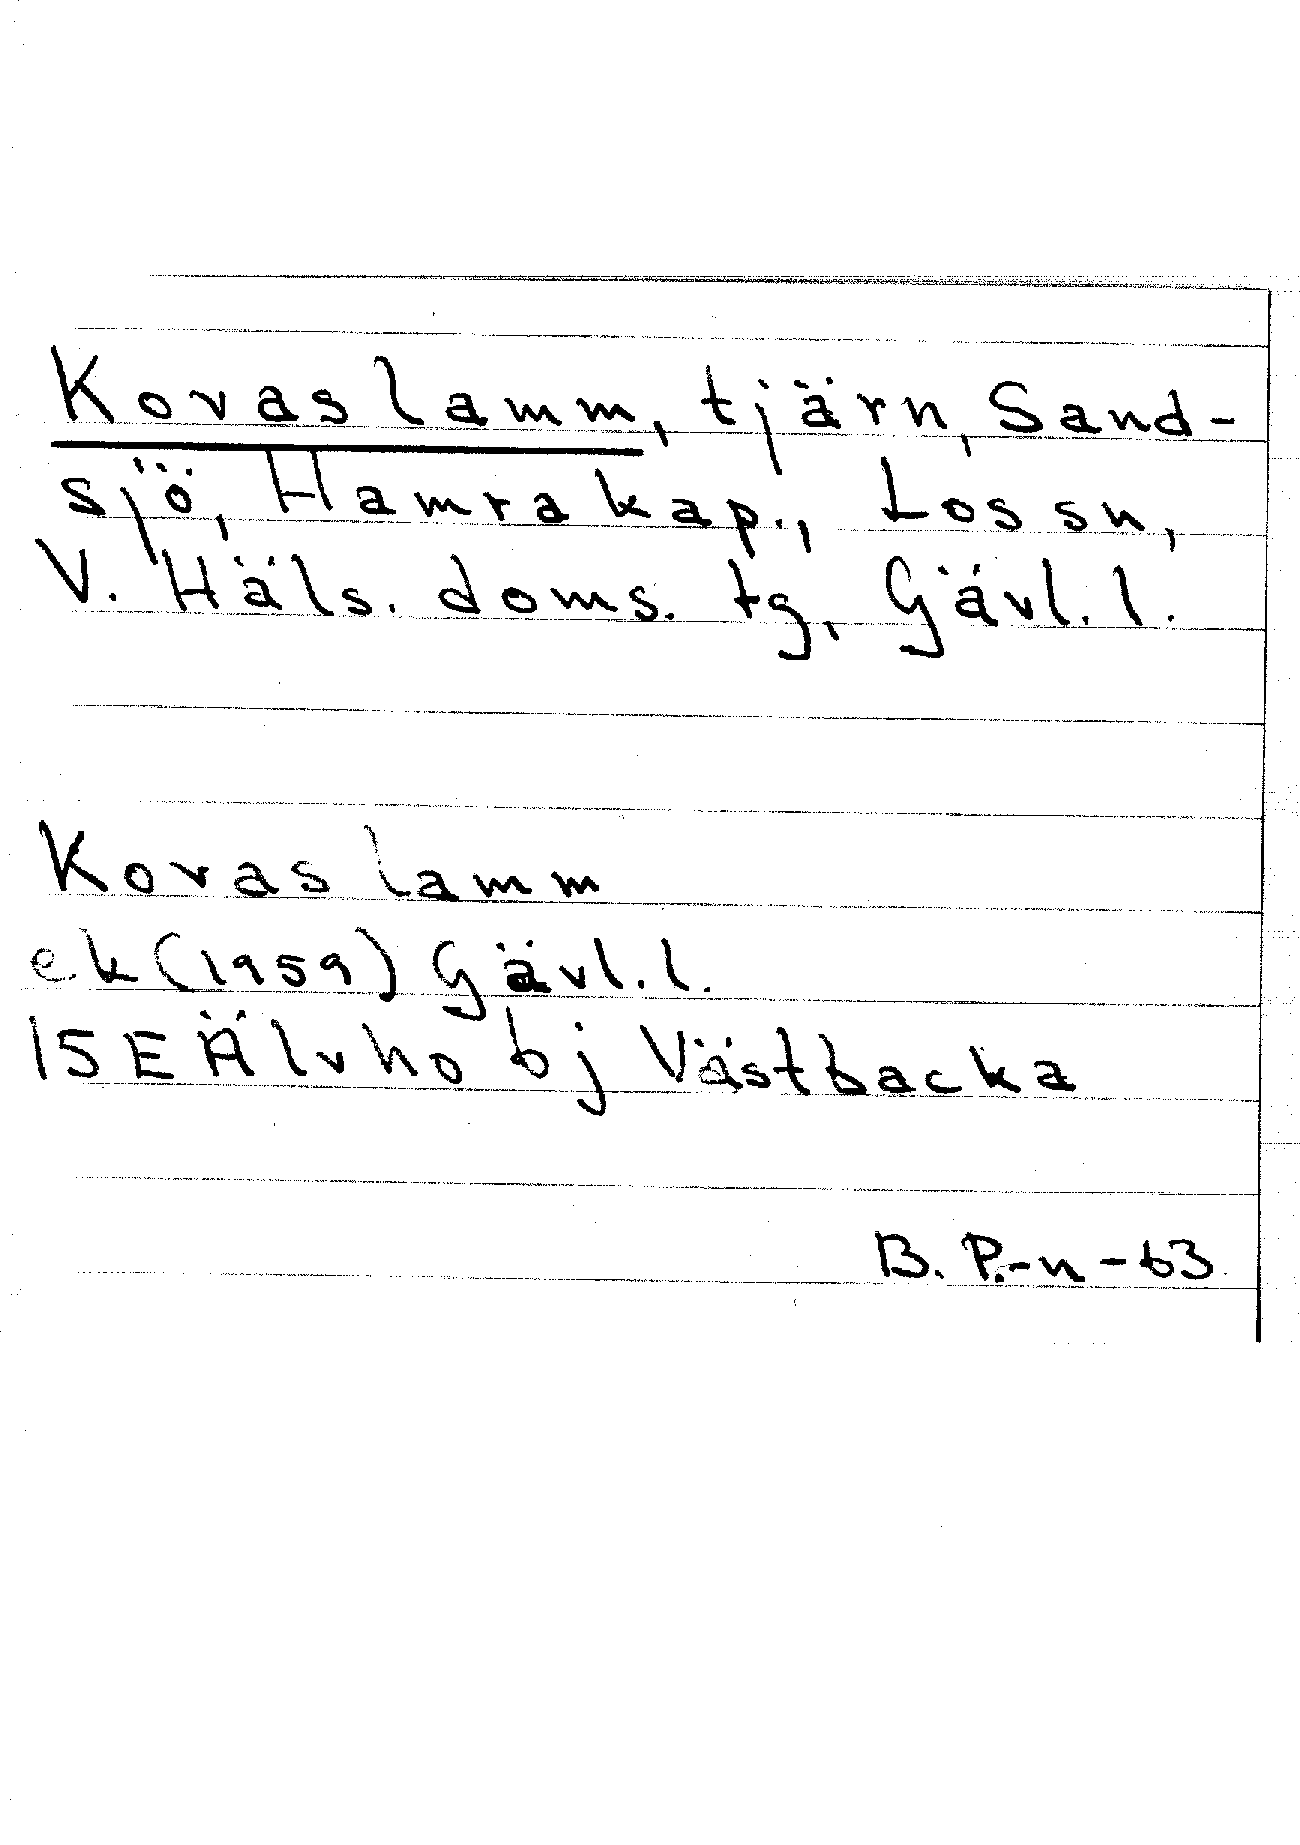 Kovaslamm, tjärn, Sand-
sjö, Hamra kap., Los sn,
V. Häls. doms. tg, Gävl. l.
Kovaslamm
ek (1959) Gävl. l.
15E Älvho bj Västbacka
B. P.-n -63